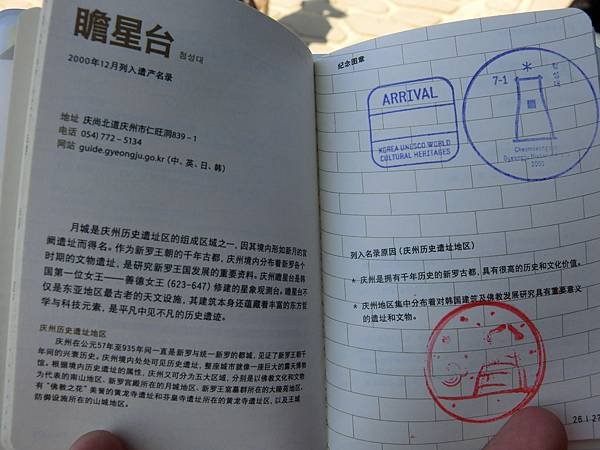 瞻星台 첨성대
2000年12月列入遗产名录
地址 庆尚北道庆州市仁旺洞839-1
电话 054) 772-5134
网站 guide.gyeongju.go.kr (中、英、日、韩)
月城是庆州历史遗址区的组成区域之一，因其境内形如新月的宫
阙遗址而得名。作为新罗王朝的千年古都，庆州境内分布着新罗各个
时期的文物遗址，是研究新罗王国发展的重要资料。庆州瞻星台是韩
国第一位女王——善德女王 (623-647) 修建的星象观测台。瞻星台不
仅是东亚地区最古老的天文设施，其建筑本身还蕴藏着丰富的东方哲
学与科技元素，是平凡中见不凡的历史遗迹。
庆州历史遗址地区
庆州在公元57年至935年间一直是新罗与统一新罗的都城，见证了新罗王朝千
年间的兴衰历史。庆州境内处处可见历史遗址，整座城市就像一座巨大的露天博物
馆。根据境内历史遗址的属性，庆州又可分为五大区域，分别是以佛教文化和文物
为代表的南山地区、新罗宫殿所在的月城地区、新罗王室墓群所在的大陵苑地区、
有“佛教之花”美誉的黄龙寺遗址和芬皇寺遗址所在的黄龙寺遗址区，以及王城
防御设施所在的山城地区。
纪念图章
ARRIVAL
KOREA UNESCO WORLD
CULTURAL HERITAGES
7-1
첨성대
2000
列入名录原因 (庆州历史遗址地区)
* 庆州是拥有千年历史的新罗古都，具有很高的历史和文化价值。
* 庆州地区集中分布着对韩国建筑及佛教发展研究具有重要意义
的遗址和文物。
26.1.27